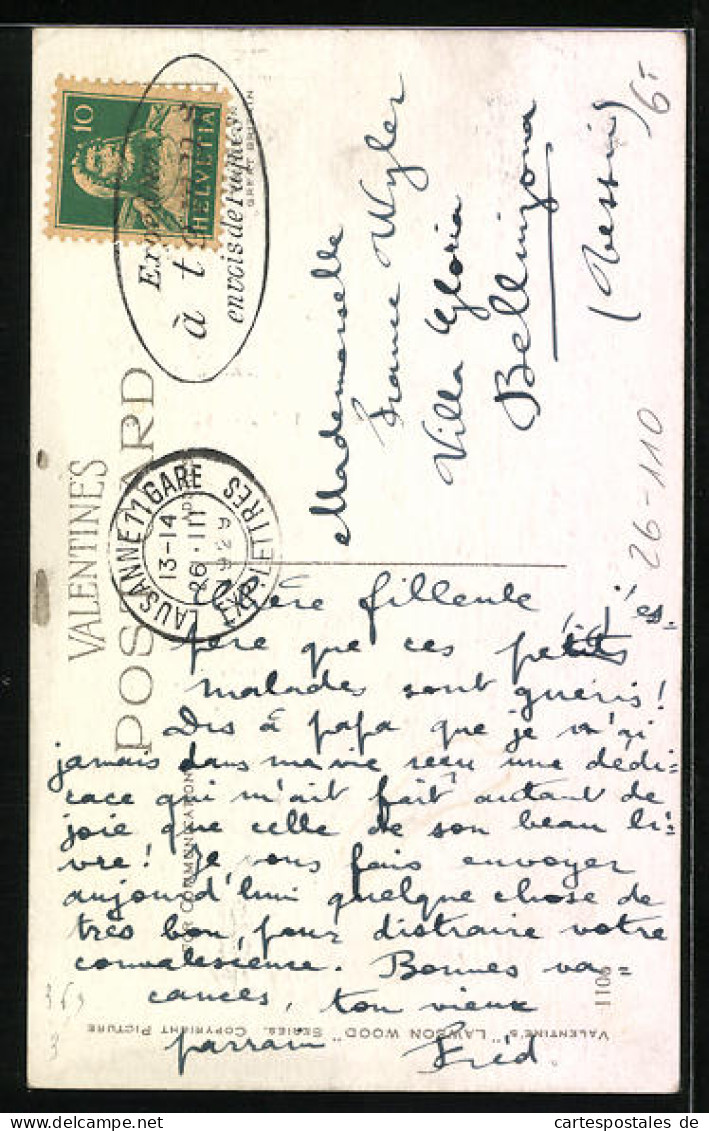 VALENTINE'S
POSTCARD
FOR COMMUNICATION
GREAT BRITAIN
10
HELVETIA
à t
envois de Pâques
LAUSANNE 11 GARE
EXP. LETTRES
13-14
26.III
1929
Mademoiselle
France Wyler
Villa Gloria
Bellinzona
(Tessin)
6-
26-110
Chère filleule, j'es-
père que ces petits
malades sont guéris!
Dis à papa que je n'ai
jamais dans ma vie recu une dédi-
cace qui m'ait fait autant de
joie que celle de son beau li-
vre! Je vous fais envoyer
aujourd'hui quelque chose de
très bon, pour distraire votre
convalescence. Bonnes va-
cances, ton vieux
parrain Fréd.
1106
369
3
VALENTINE'S "LAWSON WOOD" SERIES. COPYRIGHT PICTURE
cartespostales de